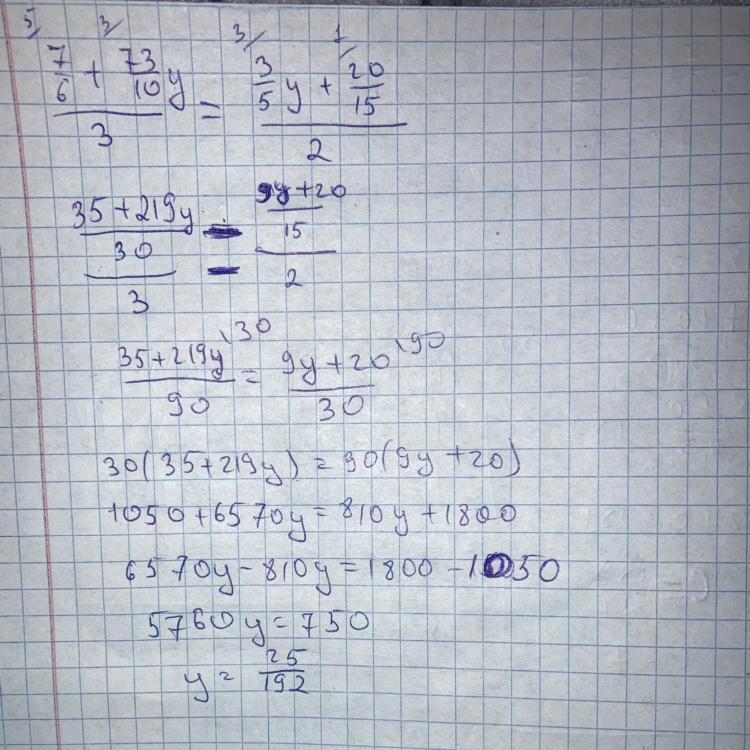 5/ 3/ 3/ 1/
7/6 + 73/10 y = 3/5 y + 20/15
3 2
35+219y = 9y+20
30 15
3 2
35+219y \30 = 9y+20 \90
90 30
30(35+219y)=90(9y+20)
1050+6570y=810y+1800
6570y-810y=1800-1050
5760y=750
y= 25/192